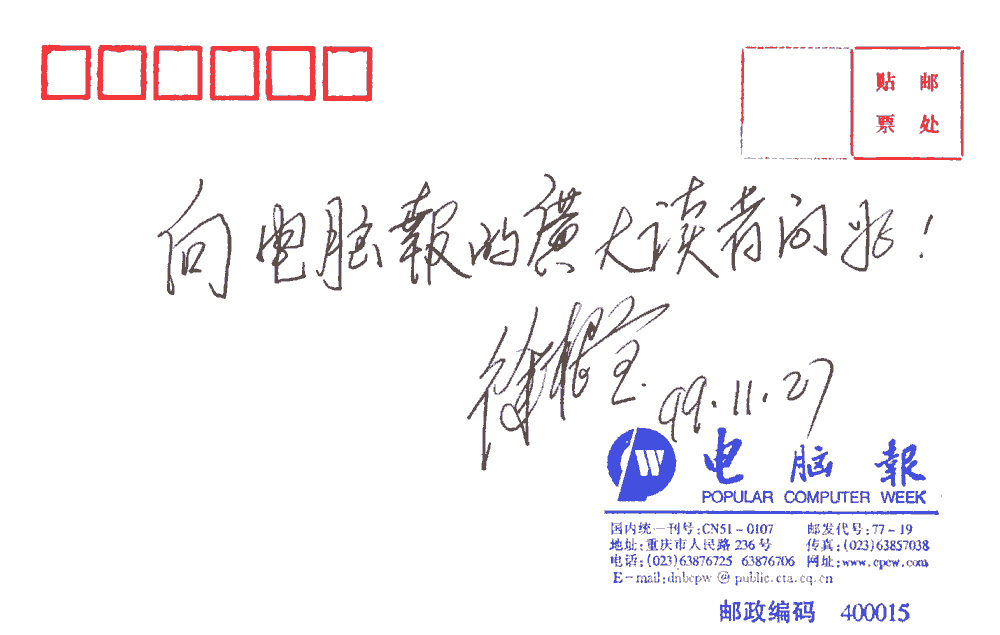 贴 邮
票 处
向电脑報的廣大读者问好!
徐根宝
99.11.27
CW 电脑報
POPULAR COMPUTER WEEK
国内统一刊号:CN51-0107 邮发代号:77-19
地址:重庆市人民路236号 传真:(023)63857038
电话:(023)63876725 63876706 网址:www.cpcw.com
E-mail:dnbcpw@public.cta.cq.cn
邮政编码 400015